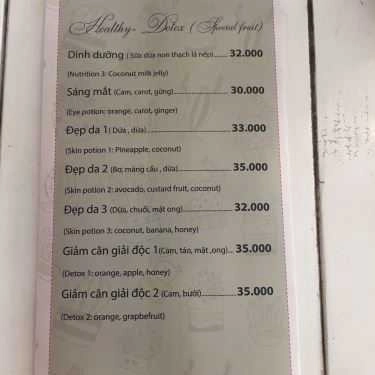 Healthy- Detox ( Special fruit)
Dinh dưỡng ( Sữa dừa non thạch lá nếp)...... 32.000
(Nutrition 3: Coconut milk jelly)
Sáng mắt (Cam, carot, gừng)................ 30.000
(Eye potion: orange, carot, ginger)
Đẹp da 1 ( Dứa , dừa)........................ 33.000
(Skin potion 1: Pineapple, coconut)
Đẹp da 2 (Bơ, mãng cầu , dừa)............ 35.000
(Skin potion 2: avocado, custard fruit, coconut)
Đẹp da 3 (Dừa, chuối, mật ong)........... 32.000
(Skin potion 3: coconut, banana, honey)
Giảm cân giải độc 1(Cam, táo, mật ,ong)... 35.000
(Detox 1: orange, apple, honey)
Giảm cân giải độc 2 (Cam, bưởi)............... 35.000
(Detox 2: orange, grapbefruit)